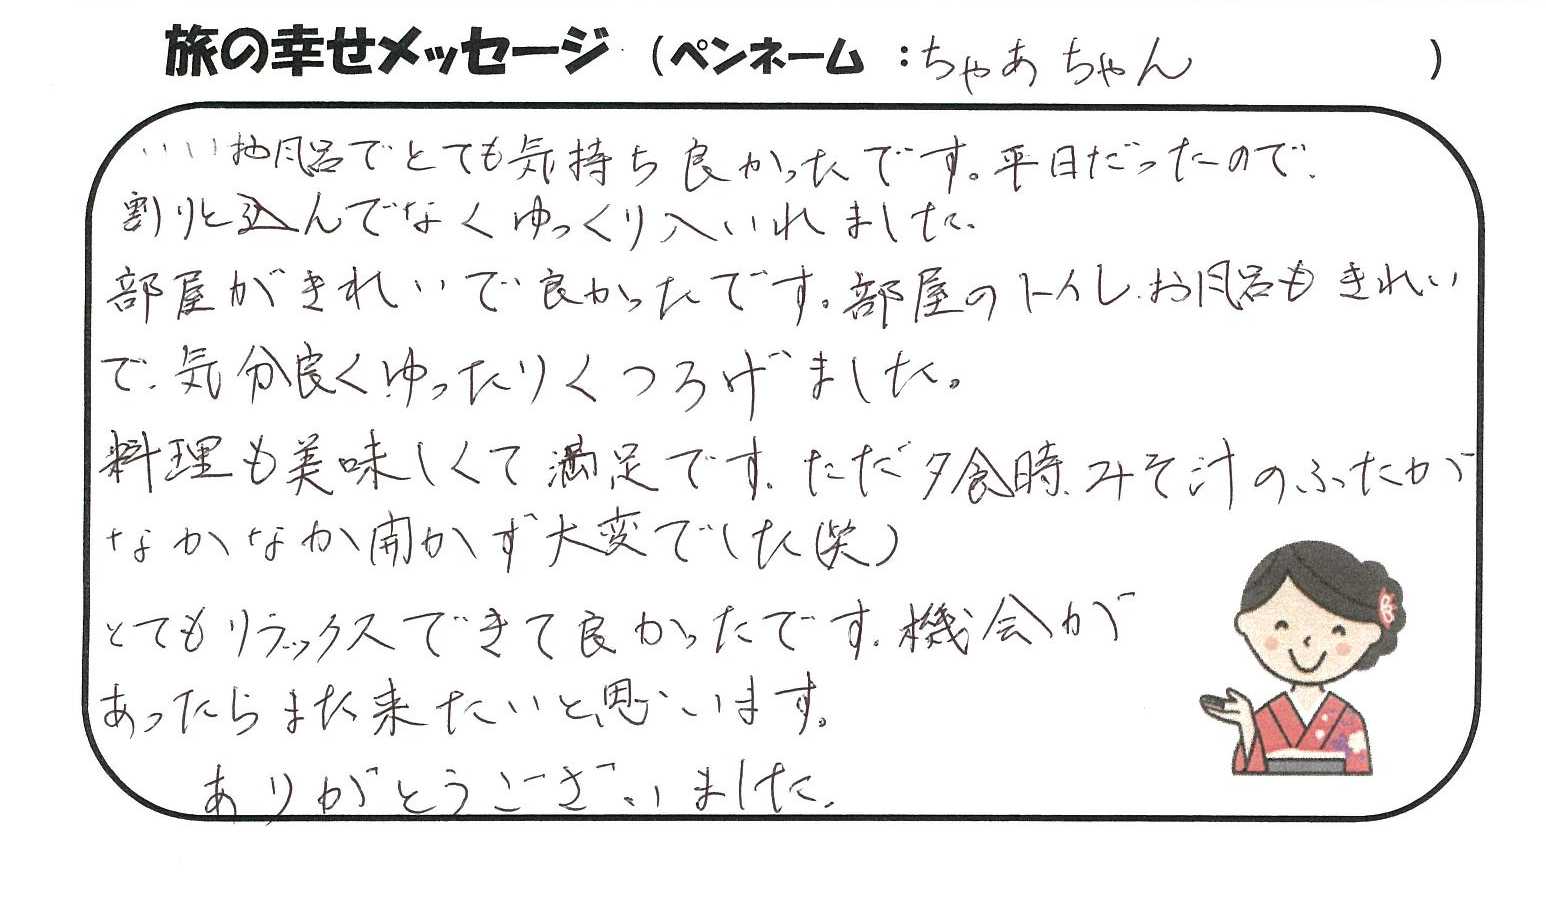 旅の幸せメッセージ (ペンネーム :ちゃあちゃん )
いいお風呂でとても気持ち良かったです。平日だったので、
割りと込んでなくゆっくり入いれました。
部屋がきれいで良かったです。部屋のトイレ、お風呂もきれい
で、気分良くゆったりくつろげました。
料理も美味しくて満足です、ただ夕食時、みそ汁のふたが
なかなか開かず大変でした(笑)
とてもリラックスできて良かったです、機会が
あったらまた来たいと思います。
ありがとうございました。